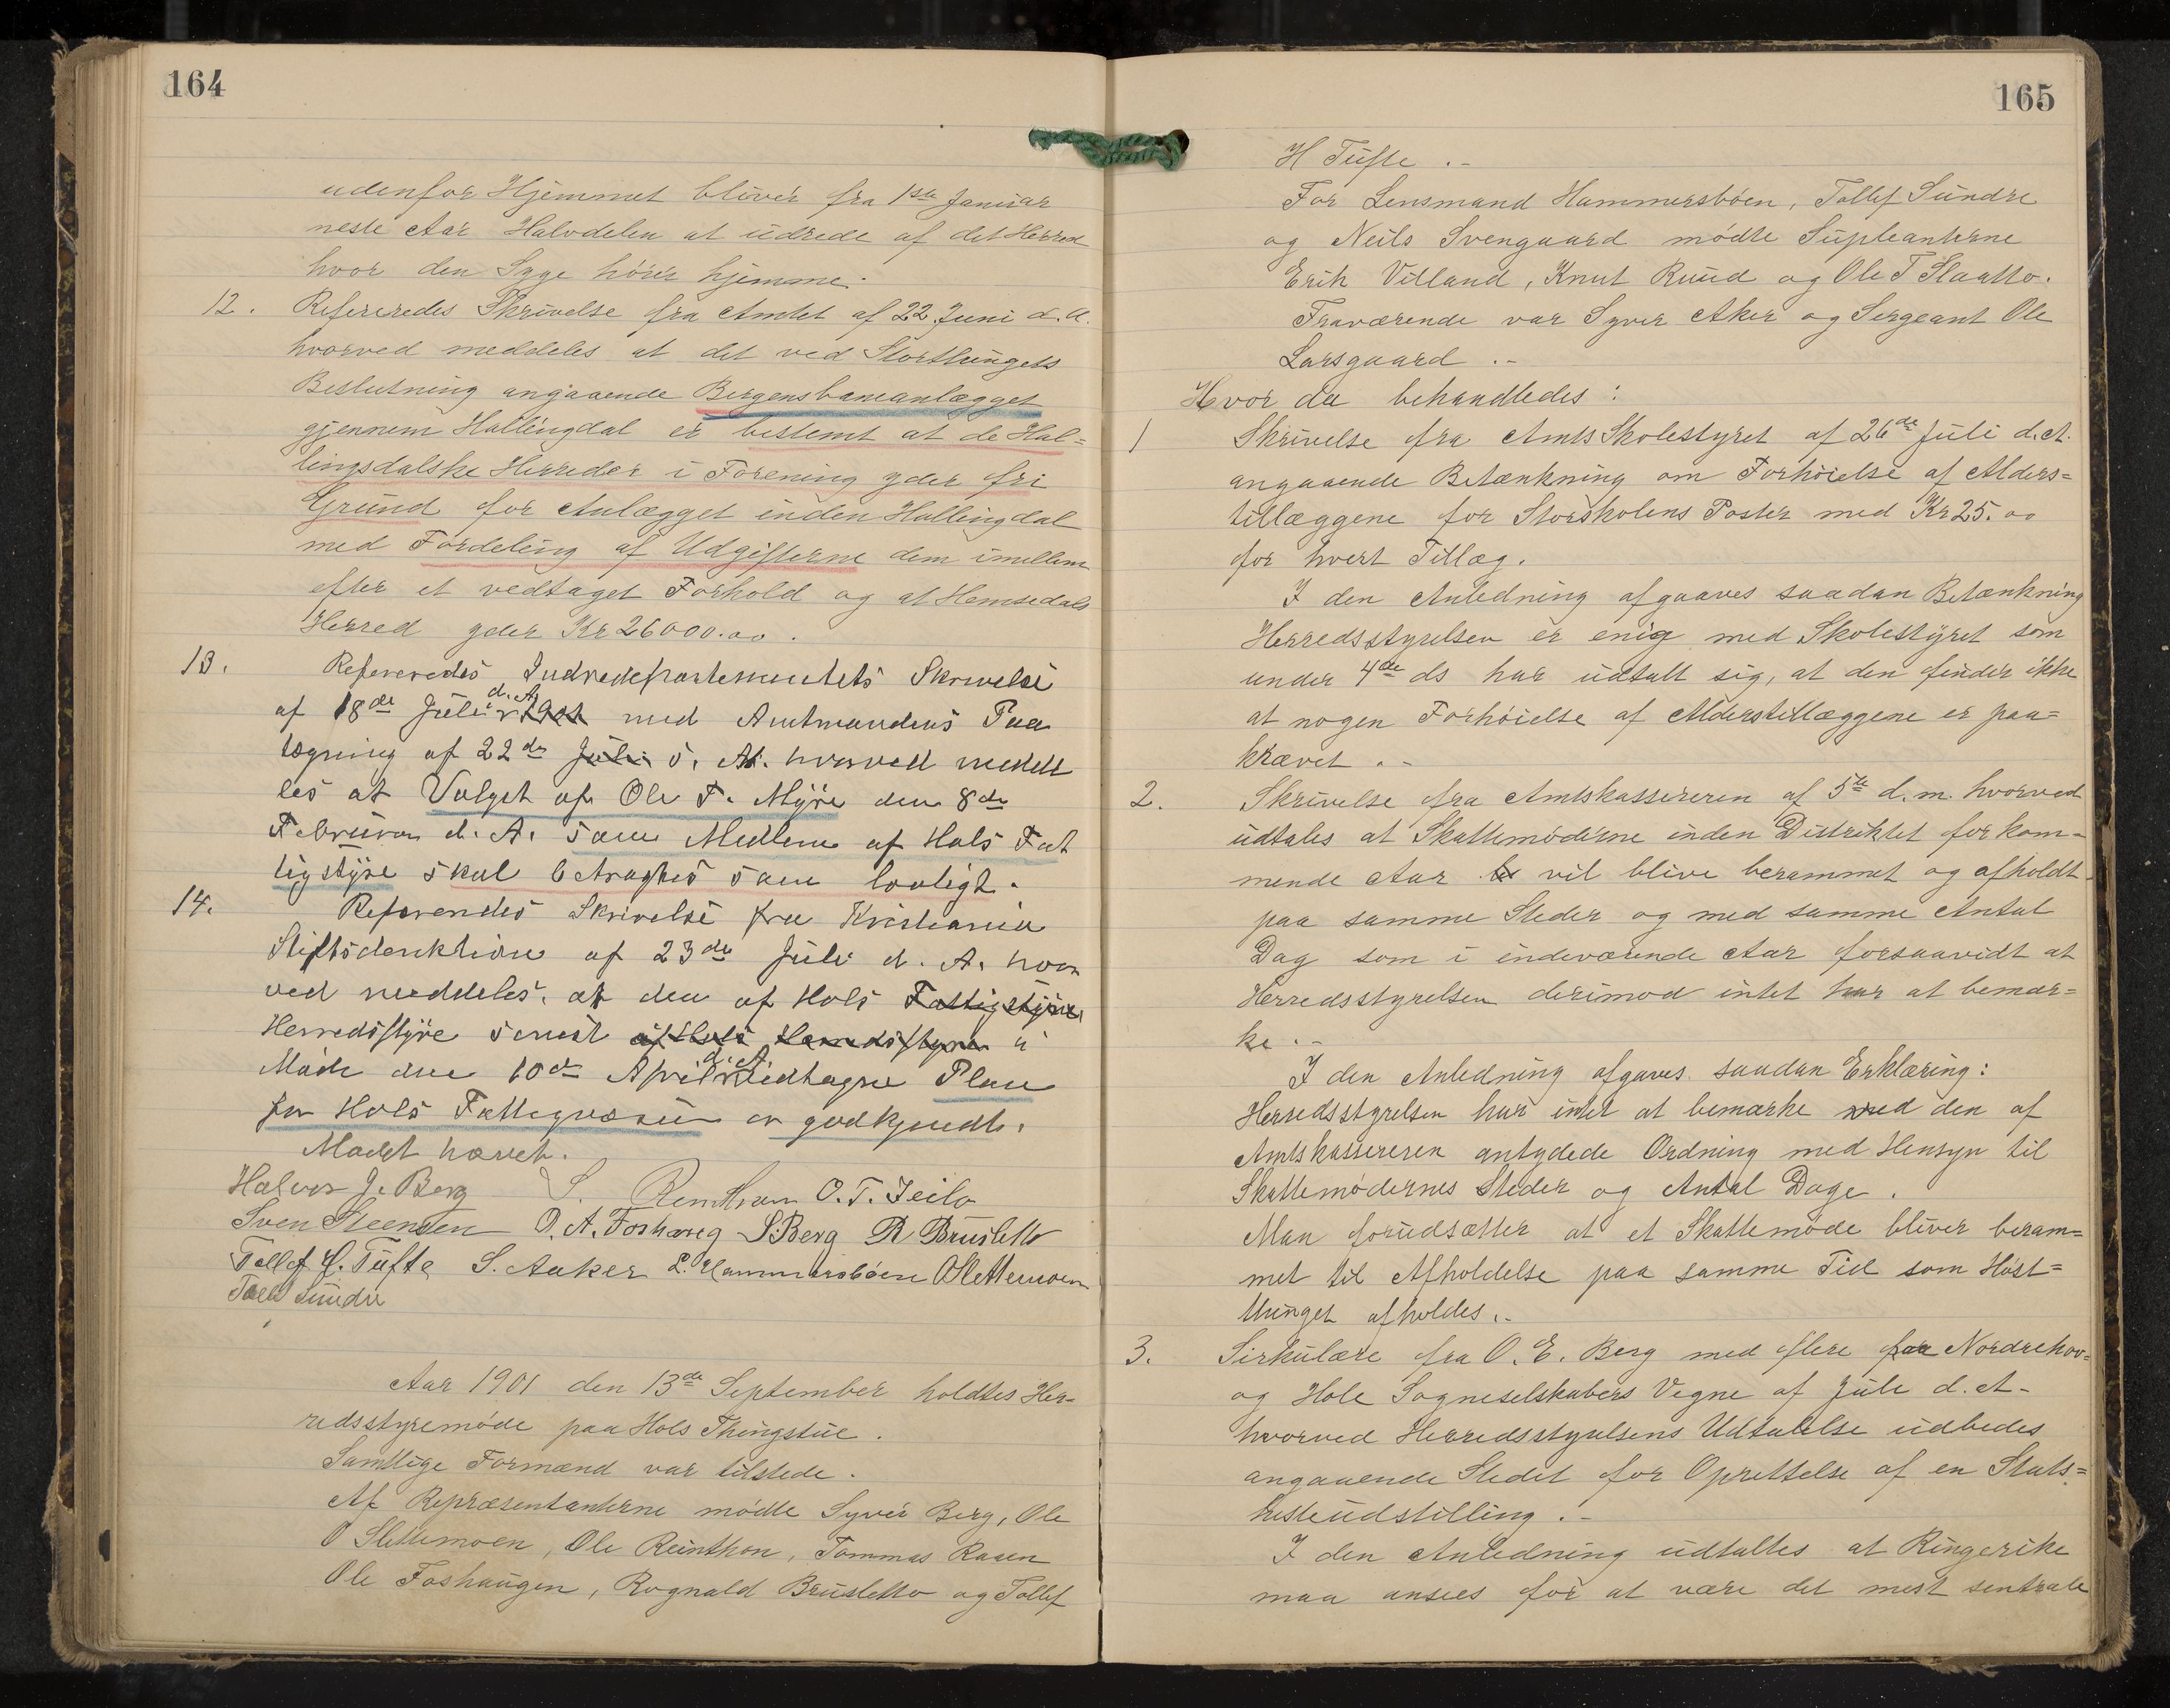 164
udenfor Hjemmet bliver fra 1ste Januar
neste Aar Halvdelen at udrede af det Herred
hvor den Syge hører hjemme.
12. Refereredes Skrivelse fra Amtet af 22 Juni d. A.
hvorved meddeles at det ved Storthingets
Beslutning angaaende Bergensbaneanlægget
gjennem Hallingdal er bestemt at de Hal=
lingdalske Herreder i Forening yder fri
Grund for Anlægget inden Hallingdal
med Fordeling af Udgifterne dem imellem
efter et vedtaget Forhold og at Hemsedals
Herred yder Kr 26000.00.
13. Refereredes Indredepartementets Skrivelse
af 18de Juli d. A. med Amtmandens Paa
tegning af 22de s. M. hvorved medde
les at Valget af Ole T. Myre den 8de
Februar d. A. som Medlem af Hols Fat
tigstyre skal betragtes som lovligt.
14. Refereredes Skrivelse fra Kristiania
Stiftsdirektion af 23de Juli d. A. hvor
ved meddeles, at den af Hols Fattigstyre
Herredsstyre senest af Hols Herredsstyre i
Møde den 10de April d. A. vedtagne Plan
for Hols Fattigvæsen er godkjendt.
Mødet hævet.
Halvor J. Berg S. O. T. Jeilo
Sven Steensen O. A. Foshaug S. Berg R Brusletto
Tollef H. Tufte S. Aaker L. Hammersbøen O Slettemoen
Tollef Sundre
Aar 1901 den 13de September holdtes Her-
redsstyremøde paa Hols Thingstue.
Samtlige Formænd var tilstede.
Af Repræsentanterne mødte Syver Berg, Ole
O Slettemoen, Ole Reinthon, Tommas Raaen
Ole Foshaugen, Rognald Brusletto og Tollef
165
H Tufte .-
For Lensmand Hammersbøen, Tollef Sundre
og Neils Svengaard mødte Supleanterne
Erik Villand, Knut Ruud og Ole T Slaatto.
Fraværende var Syver Aker og Sergeant Ole
Larsgaard .-
Hvor da behandledes:
1 Skrivelse fra Amts Skolestyret af 26de Juli d. A.
angaaende Betænkning om Forhøielse af Alders=
tillæggene for Storskolens Poster med Kr 25.00
for hvert Tillæg.
I den Anledning afgaaves saadan Betænkning
Herredsstyrelsen er enig med Skolestyret som
under 4de ds har udtalt sig, at den finder ikke
at nogen Forhøielse af Alderstillæggene er paa=
krævet .-
2. Skrivelse fra Amtskassereren af 5te d. m. hvorved
udtales at Skattemøderne inden Distriktet for kom-
mende Aar vil blive berammet og afholdt
paa samme Steder og med samme Antal
Dag som i indeværende Aar forsaavidt at
Herredsstyrelsen derimod intet har at bemær=
ke .-
I den Anledning afgaves saadan Erklæring:
Herredsstyrelsen har intet at bemærke ved den af
Amtskassereren antydede Ordning med Hensyn til
Skattemødernes Steder og Antal Dage.
Man forudsætter at et Skattemøde bliver beram=
met til Afholdelse paa samme Tid som Høst=
thinget afholdes .-
3. Sirkulære fra O. E. Berg med flere paa Nordrehov-
og Hole Sogneselskabers Vegne af Juli d. A-
hvorved Herredsstyrelsens Udtalelse udbedes
angaaende Stedet for Oprettelse af en Stats=
hesteudstilling .-
I den Anledning udtaltes at Ringerike
maa ansees for at være det mest sentrale